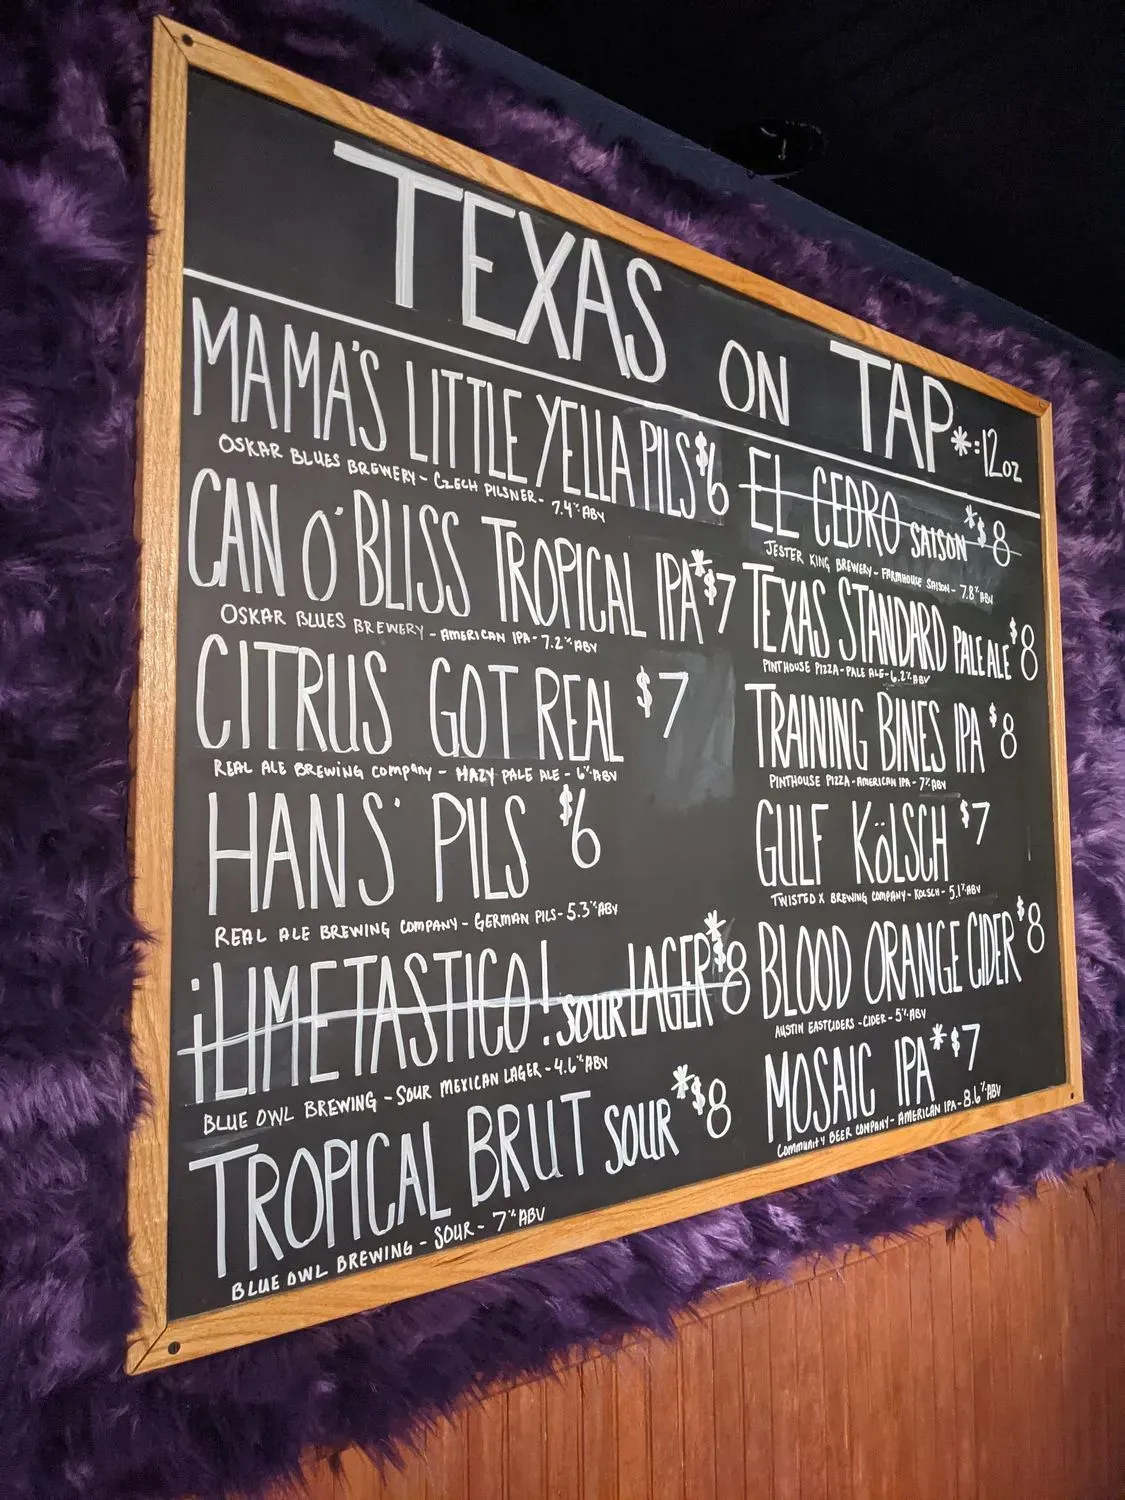 TEXAS ON TAP *=12oz
MAMA'S LITTLE YELLA PILS $6
OSKAR BLUES BREWERY - CZECH PILSNER - 7.4% ABV
CAN O' BLISS TROPICAL IPA* $7
OSKAR BLUES BREWERY - AMERICAN IPA - 7.2% ABV
CITRUS GOT REAL $7
REAL ALE BREWING COMPANY - HAZY PALE ALE - 6% ABV
HANS' PILS $6
REAL ALE BREWING COMPANY - GERMAN PILS - 5.3% ABV
¡LIMETASTICO! SOUR LAGER* $8
BLUE OWL BREWING - SOUR MEXICAN LAGER - 4.6% ABV
TROPICAL BRUT SOUR* $8
BLUE OWL BREWING - SOUR - 7% ABV
EL CEDRO SAISON* $8
JESTER KING BREWERY - FARMHOUSE SAISON - 7.8% ABV
TEXAS STANDARD PALE ALE $8
PINTHOUSE PIZZA - PALE ALE - 6.2% ABV
TRAINING BINES IPA $8
PINTHOUSE PIZZA - AMERICAN IPA - 7% ABV
GULF KÖLSCH $7
TWISTED X BREWING COMPANY - KOLSCH - 5.1% ABV
BLOOD ORANGE CIDER $8
AUSTIN EASTCIDERS - CIDER - 5% ABV
MOSAIC IPA* $7
COMMUNITY BEER COMPANY - AMERICAN IPA - 8.6% ABV